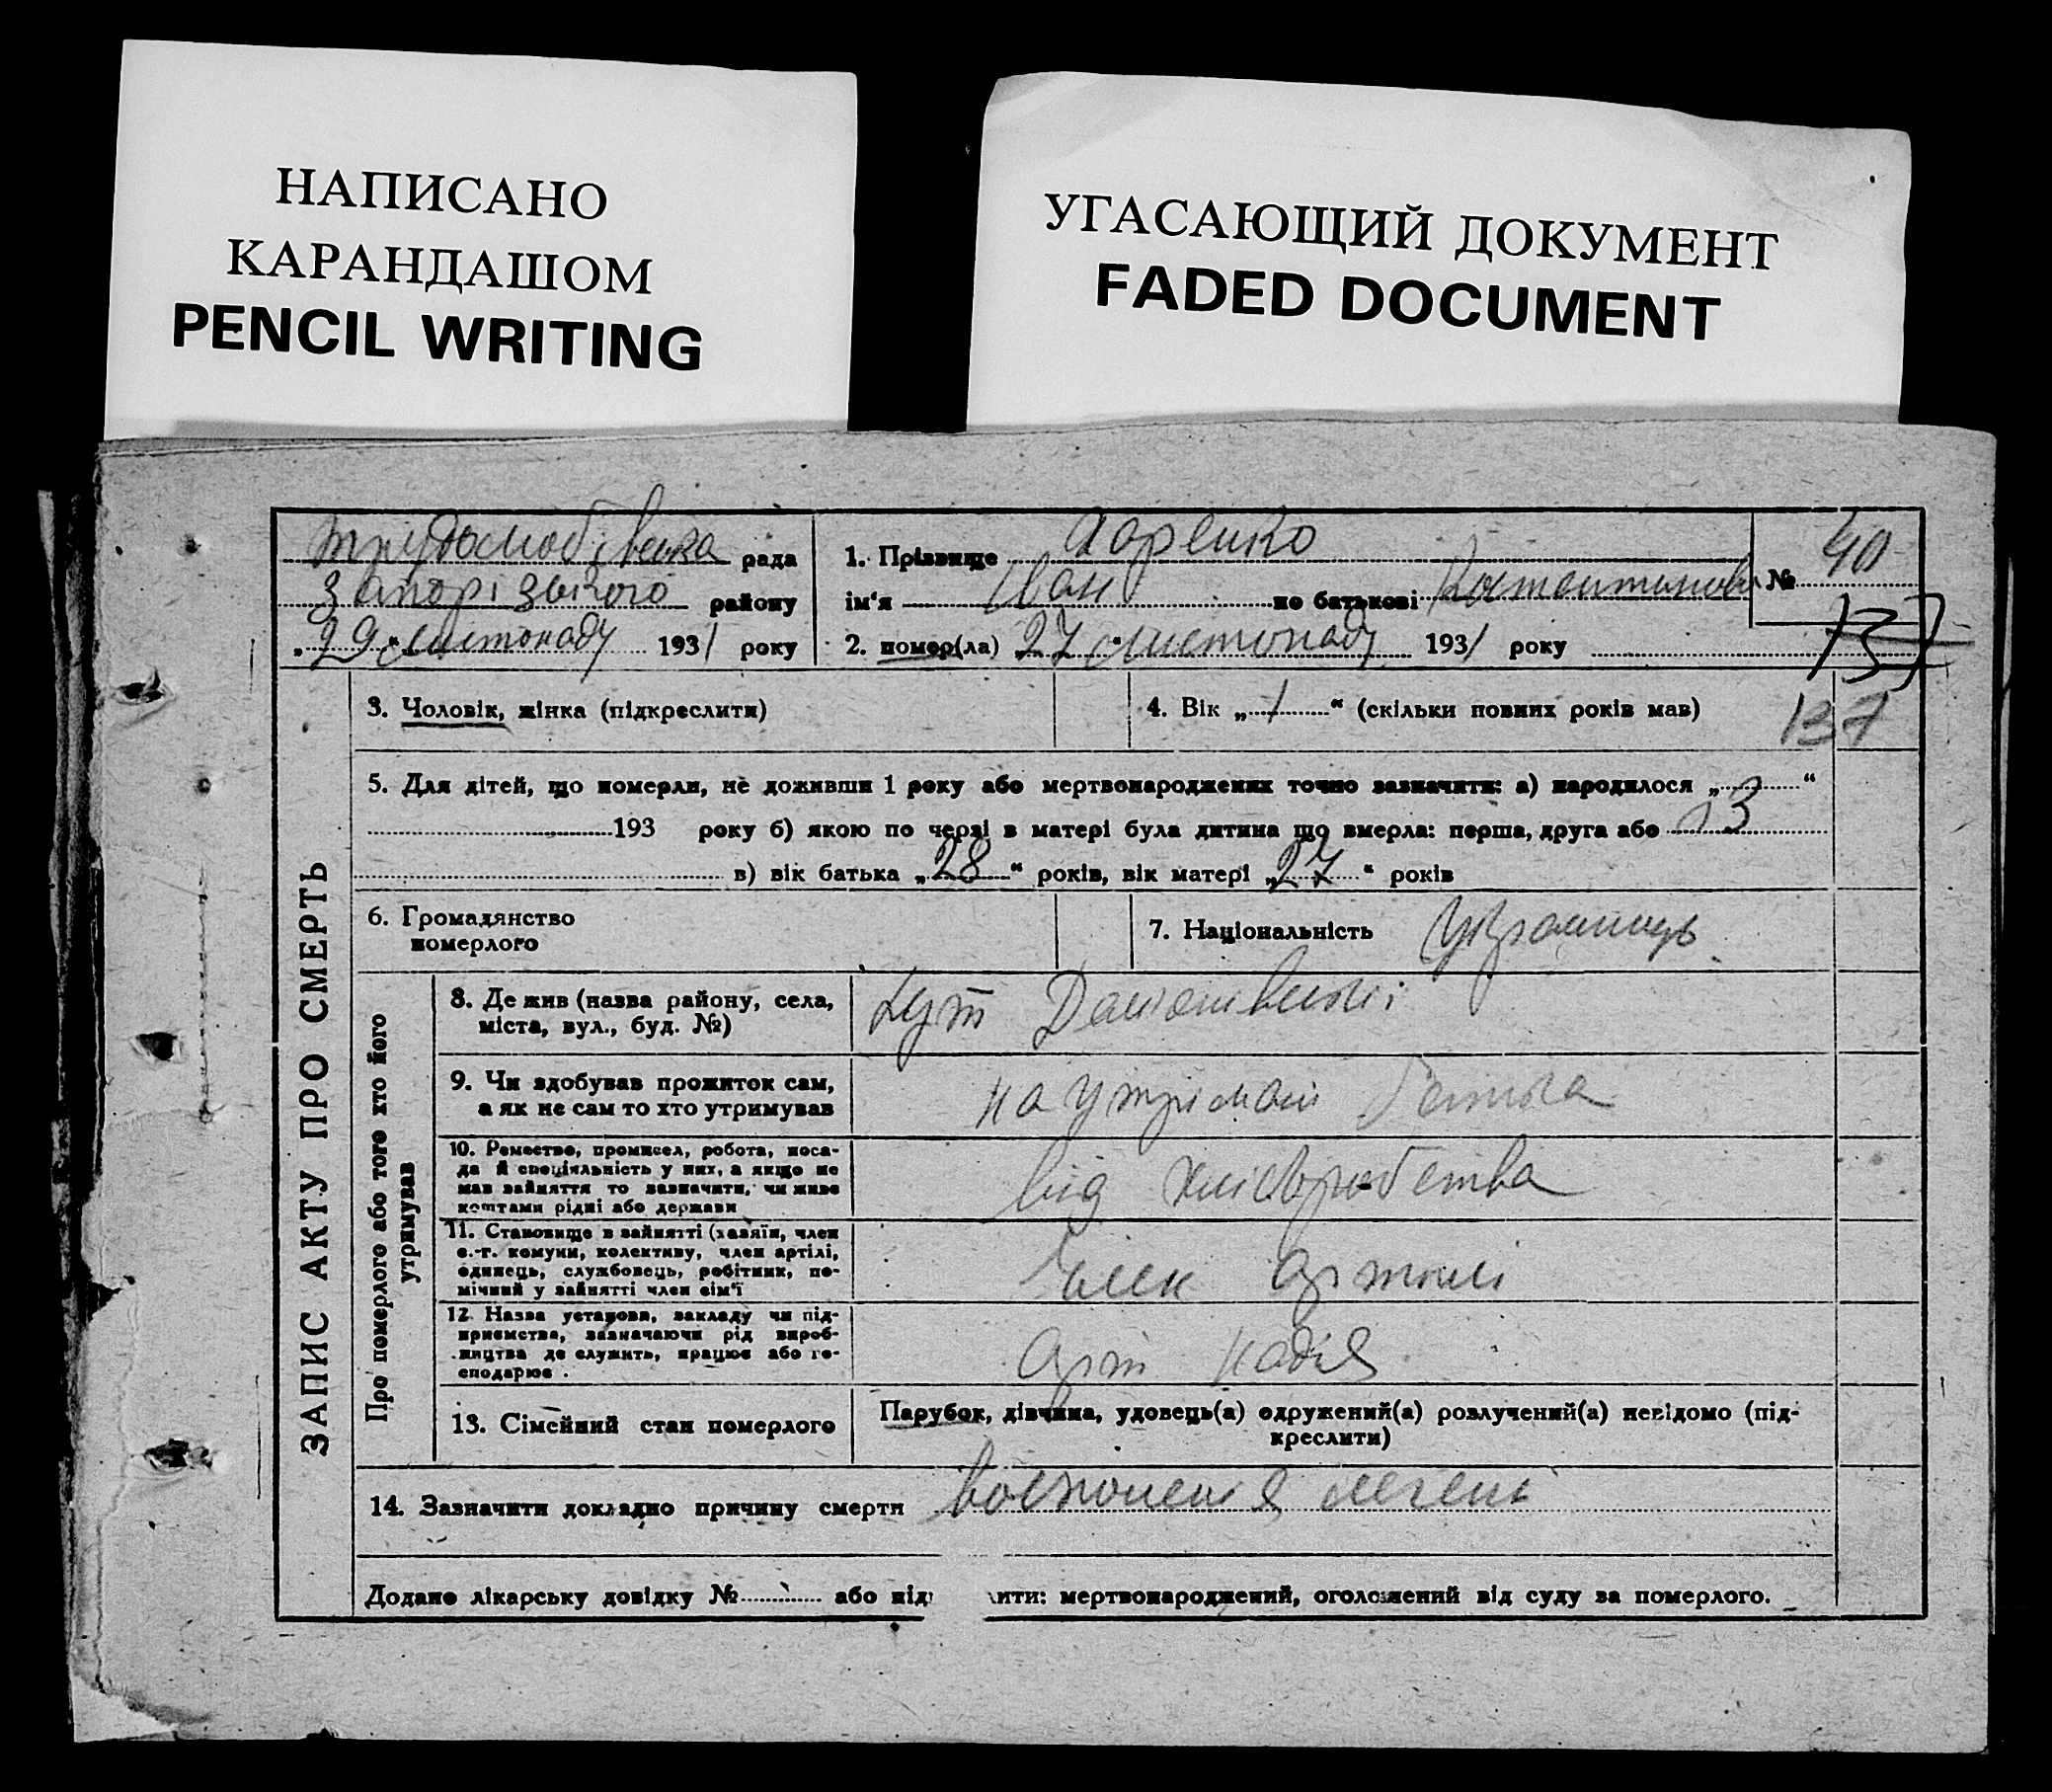 НАПИСАНО
КАРАНДАШОМ
PENCIL WRITING
УГАСАЮЩИЙ ДОКУМЕНТ
FADED DOCUMENT
Трудолюбівська рада
Запорізького району
„29“ листопаду 1931 року
1. Прізвище
ім'я Іван по батькові
№ 40
2. помер(ла) „27“ листопаду 1931 року
137
137
ЗАПИС АКТУ ПРО СМЕРТЬ
3. Чоловік, жінка (підкреслити)
4. Вік „1“ (скільки повних років мав)
5. Для дітей, що померли, не доживши 1 року або мертвонароджених точно зазначити: а) народилося „ “
193 року б) якою по черзі в матері була дитина що вмерла: перша, друга або 3
в) вік батька „28“ років, вік матері „27“ років
6. Громадянство
померлого
7. Національність Українець
Про померлого або того хто його
утримував
8. Де жив (назва району, села,
міста, вул., буд. №)
хут
9. Чи здобував прожиток сам,
а як не сам то хто утримував
на утрімані батька
10. Ремество, промисел, робота, поса-
да й спеціяльність у них, а якщо не
мав зайняття то зазначити, чи живе
коштами рідні або держави
від хлібробства
11. Становище в зайнятті (хазяїн, член
с.-г. комуни, колективу, член артілі,
одинець, службовець, робітник, по-
мічний у зайнятті член сім'ї
Член артілі
12. Назва установи, закладу чи під-
приємства, зазначаючи рід вироб-
ництва де служить, працює або го-
сподарює.
Арт Надія
13. Сімейний стан померлого
Парубок, дівчина, удовець(а) одружений(а) розлучений(а) невідомо (під-
креслити)
14. Зазначити докладно причину смерти восполенія легень
Додано лікарську довідку № або під ити: мертвонароджений, оголошений від суду за померлого.